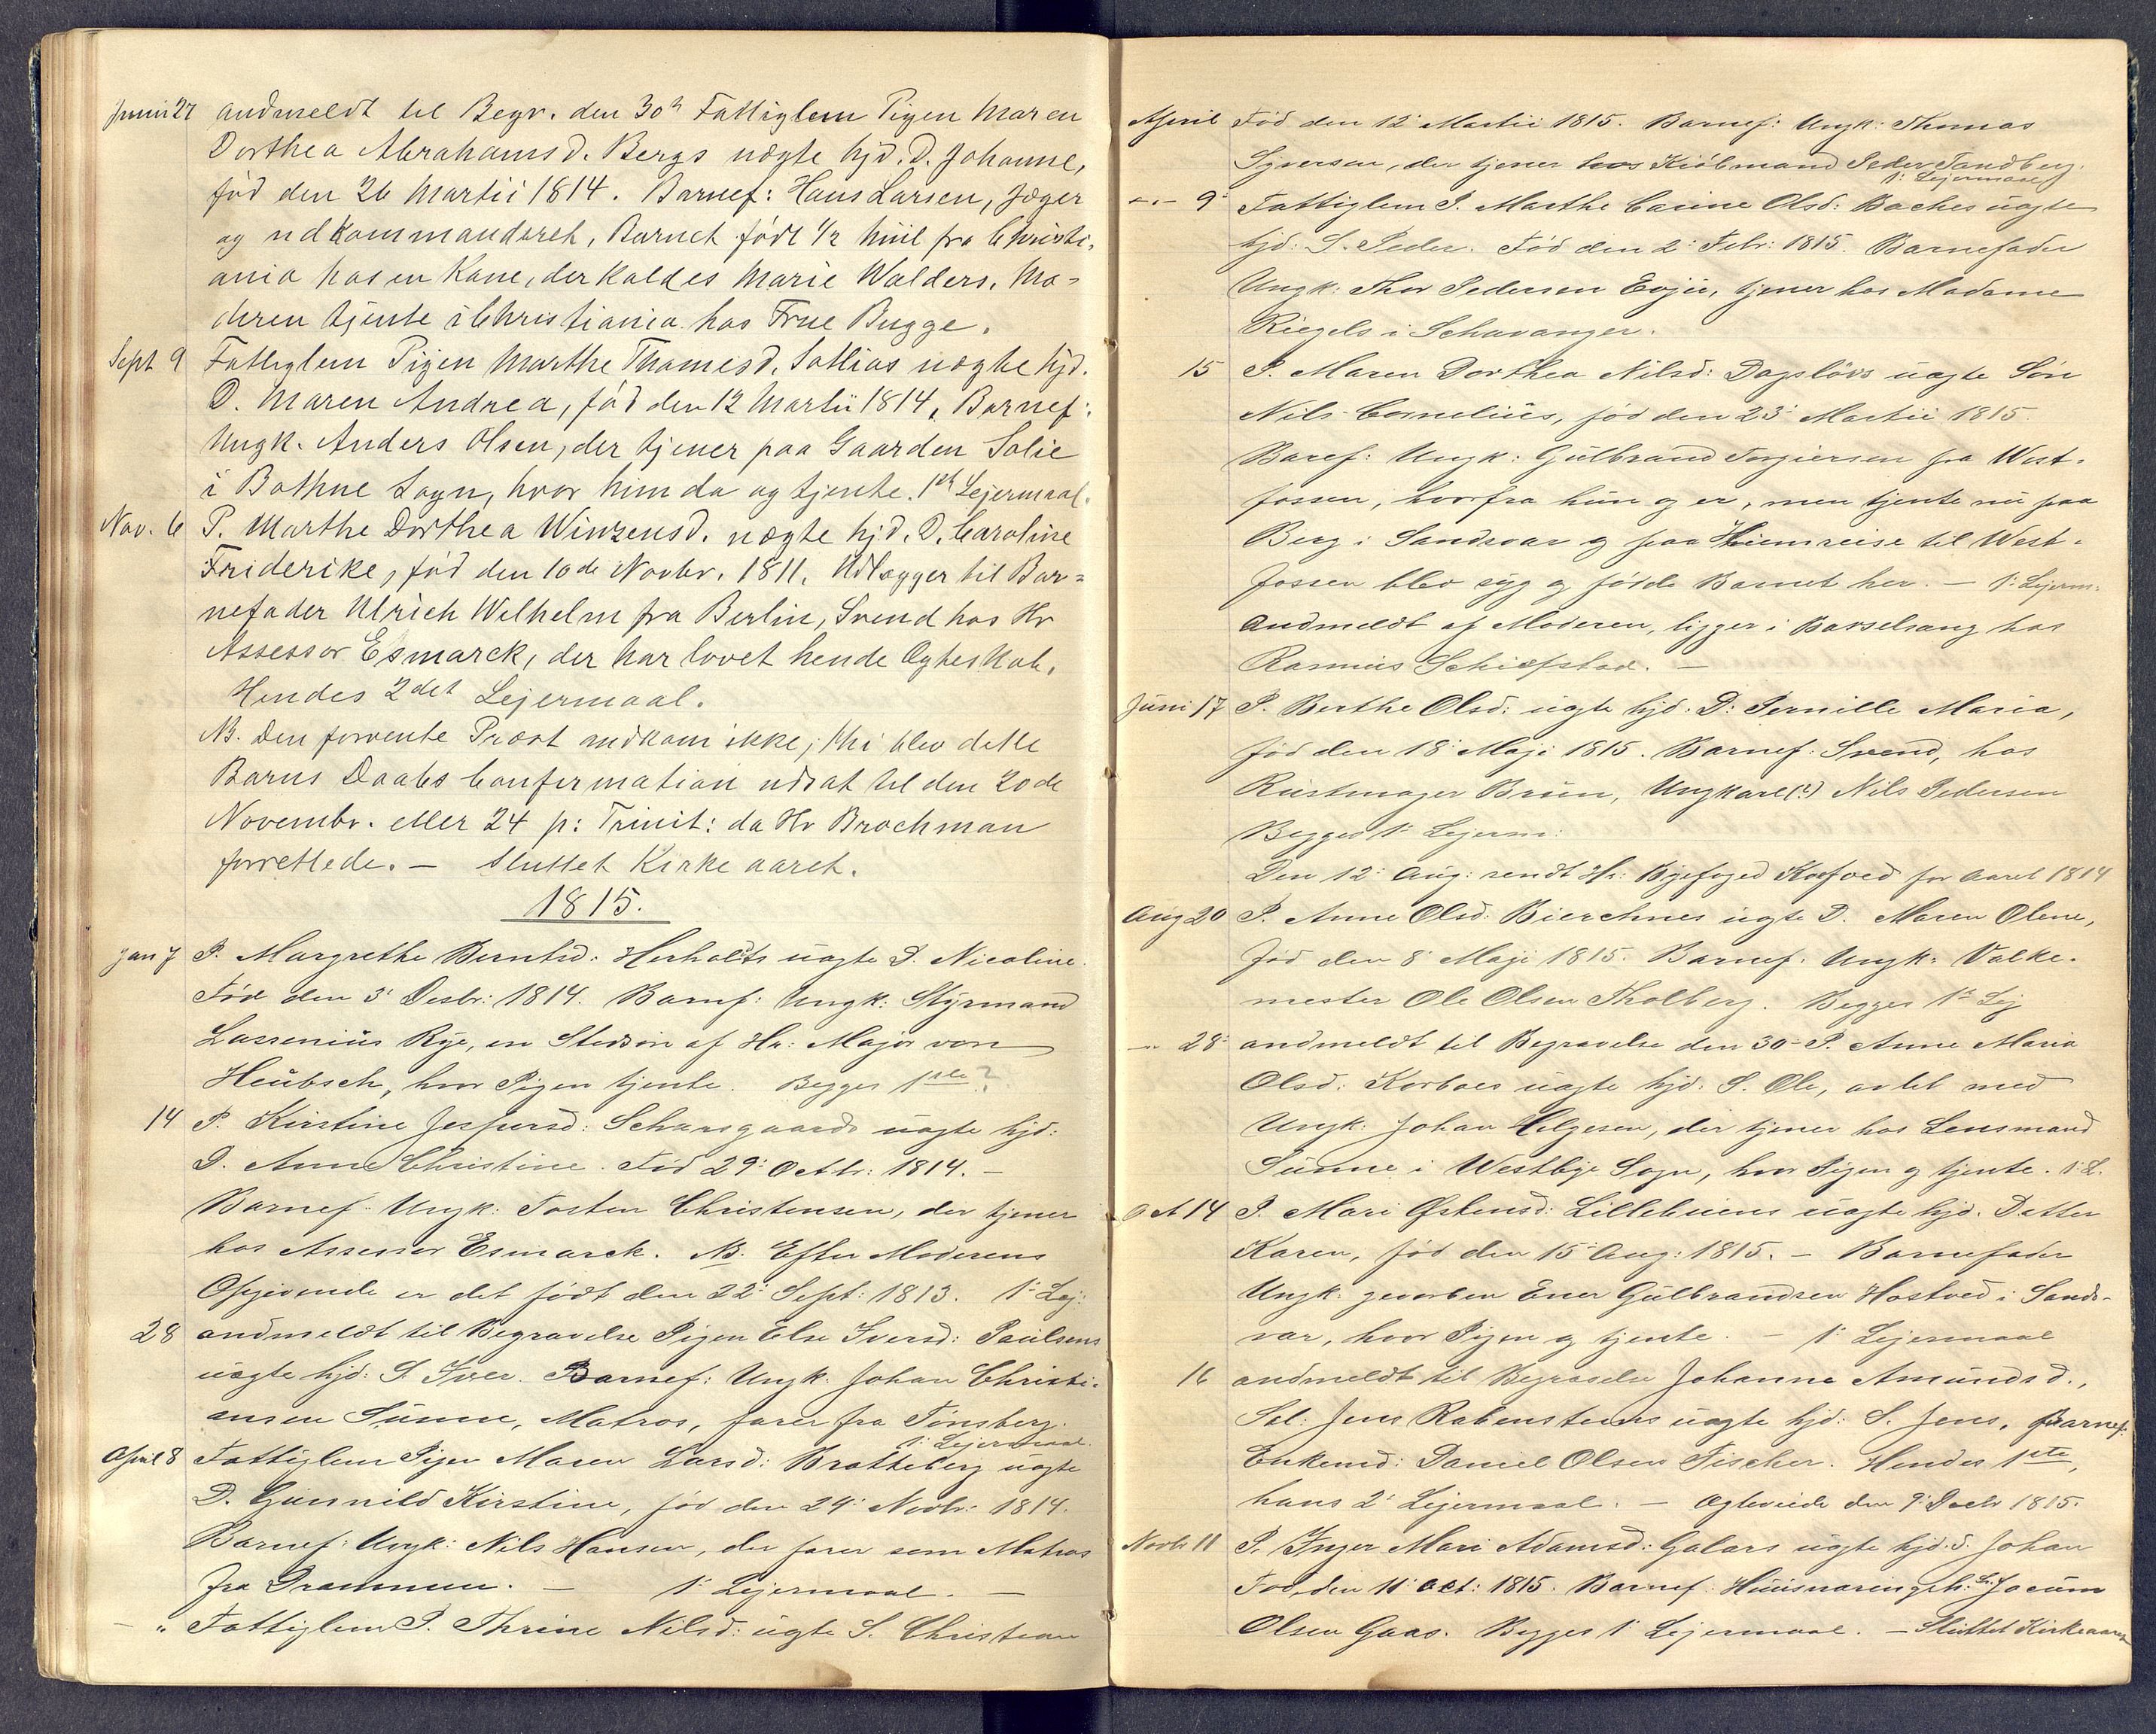 Juni 27 andmeldt til Begr. den 30te Fattiglem Pigen Maren
Dorthea Abrahamsd. Bergs uægte hjd. D. Johanne,
fød den 26 Martii 1814. Barnef: Hans Larsen, Jæger
og udkommanderet, Barnet födt 1/2 Miil fra Christi-
ania hos en Kone, der kaldes Marie Walders. Mo-
deren tjente i Christiania hos Frue Bugge.
Sept 9 Fattiglem Pigen Marthe Thomesd. Satlias uægte hjd.
D. Maren Andrea, fød den 12 Martii 1814, Barnef:
Ungk. Anders Olsen, der tjener paa Gaarden Solie
i Bothne Sogn, hvor hun da og tjente. 1st Lejermaal.
Nov. 6 P. Marthe Dorthea Winzensd. uægte hjd. D. Caroline
Friderike, fød den 10de Novbr. 1811. Udlægger til Bar-
nefader Ulrich Wilhelm fra Berlin, Svend hos Hr
Assessor Esmarck, der har lovet hende Ægteskab.
Hendes 2det Lejermaal.
NB. Den forvente Præst andkom ikke; thi blev dette
Barns Daabs Confirmation udsat til den 20de
Novembr. eller 24 p: Trinit: da Hr Brochman
forrettede. — Sluttet Kirkeaaret.
1815.
Jan 7 P. Margrethe Berntsd: Herholdts uægte D. Nicoline.
Fød den 3: Desbr: 1814. Barnf: Ungk: Styrmand
Lassenius Rye, en Stedsön af Hr: Major von
Heübsch, hvor Pigen tjente. Begges 1ste?
14 P. Kirstine Jespersd: Scharsgaards uægte hjd:
D. Anne Christine. Fød 29: Octbr: 1814. —
Barnef. Ungk: Tosten Christensen, der tjener
hos Assessor Esmarck. NB. Efter Moderens
Opgivende er det födt den 22: Sept: 1813. 1: Lej:
28 andmeldt til Begravelse Pigen Else Iversd: Paülsens
uægte hjd: S. Iver. Barnef: Ungk. Johan Christi-
ansen Sünne, Matros, farer fra Tönsberg.
1: Lejermaal.
April 8 Fattiglem Pigen Maren Larsd: Bratteberg uægte
D. Günnild Kirstine, fød den 24: Novbr: 1814.
Barnef: Ungk: Nils Hansen, der farer som Matros
fra Drammen. — 1: Lejermaal. —
— " Fattiglem P. Thrine Nilsd: uægte S. Christian
April Fød den 12: Martii 1815. Barnef: Ungk: Thomas
Syversen, der tjener hos Kiöbmand Peder Sandberg.
1: Lejermaal
-.- 9: Fattiglem P. Marthe Carine Olsd: Baches uægte
hjd: S. Peder. Fød den 2: Febr: 1815. Barnefader
Ungk: Thor Pedersen Evjü, tjener hos Madame
Riegels i Schavanger.
15 P. Maren Dorthea Nilsd: Dagslövs uægte Sön
Nils Cornelius, fød den 23: Martii 1815.
Baref: Ungk: Gülbrand Torgiersen fra West-
fossen, hvorfra hün og er, men tjente nu paa
Berg i Sandsvær og paa Hiemreise til West-
fossen blev syg og födte Barnet her. — 1: Lejerm:
Andmeldt af Moderen, ligger i Barselsang hos
Rasmus Schiefstad. —
Juni 17 P. Berthe Olsd: uægte hjd. D: Pernille Maria,
fød den 18: Maji 1815. Barnef: Svend, hos
Rüstmager Brün, Ungkarl(?) Nils Pedersen
Begges 1: Lejerm:
Den 12: Aug: sendt Hr: Byefoged Kofoed for Aaret 1814
Aug 20 P. Anne Olsd: Bierchnes uægte D. Maren Olene,
fød den 8: Maji 1815. Barnef: Ungk: Valke-
mester Ole Olsen Tholberg. Begges 1st Lej
— 28: andmeldt til Begravelse den 30- P. Anne Maria
Olsd: Korboes uægte hjd: S. Ole, avlet med
Ungk: Johan Helgesen, der tjener hos Lensmand
Sünne i Westbye Sogn, hvor Pigen og tjente. 1: L.
Oct 14 P. Mari Østensd: Lillebuens uægte hjd. Datter
Karen, fød den 15: Aug: 1815. — Barnefader
Ungk: gevorben Ener Gülbrandsen Hostved i Sands-
vær, hvor Pigen og tjente. 1: Lejermaal
16 andmeldt til Begravelse Johanne Amündsd.,
Sal: Jens Rabensteens uægte hjd: S. Jens, Barnef.
Enkemd: Daniel Olsen Fischer. Hendes 1ste,
hans 2: Lejermaal. — Ægteviede den 9: Decbr 1815.
Novbr 11 P. Inger Mari Adamsd: Galaas uægte hjd. S. Johan
Fød den 11: Oct: 1815. Barnef: Jocüm
Olsen Gaas. Begges 1: Lejermaal. — Sluttet Kirkeaaret